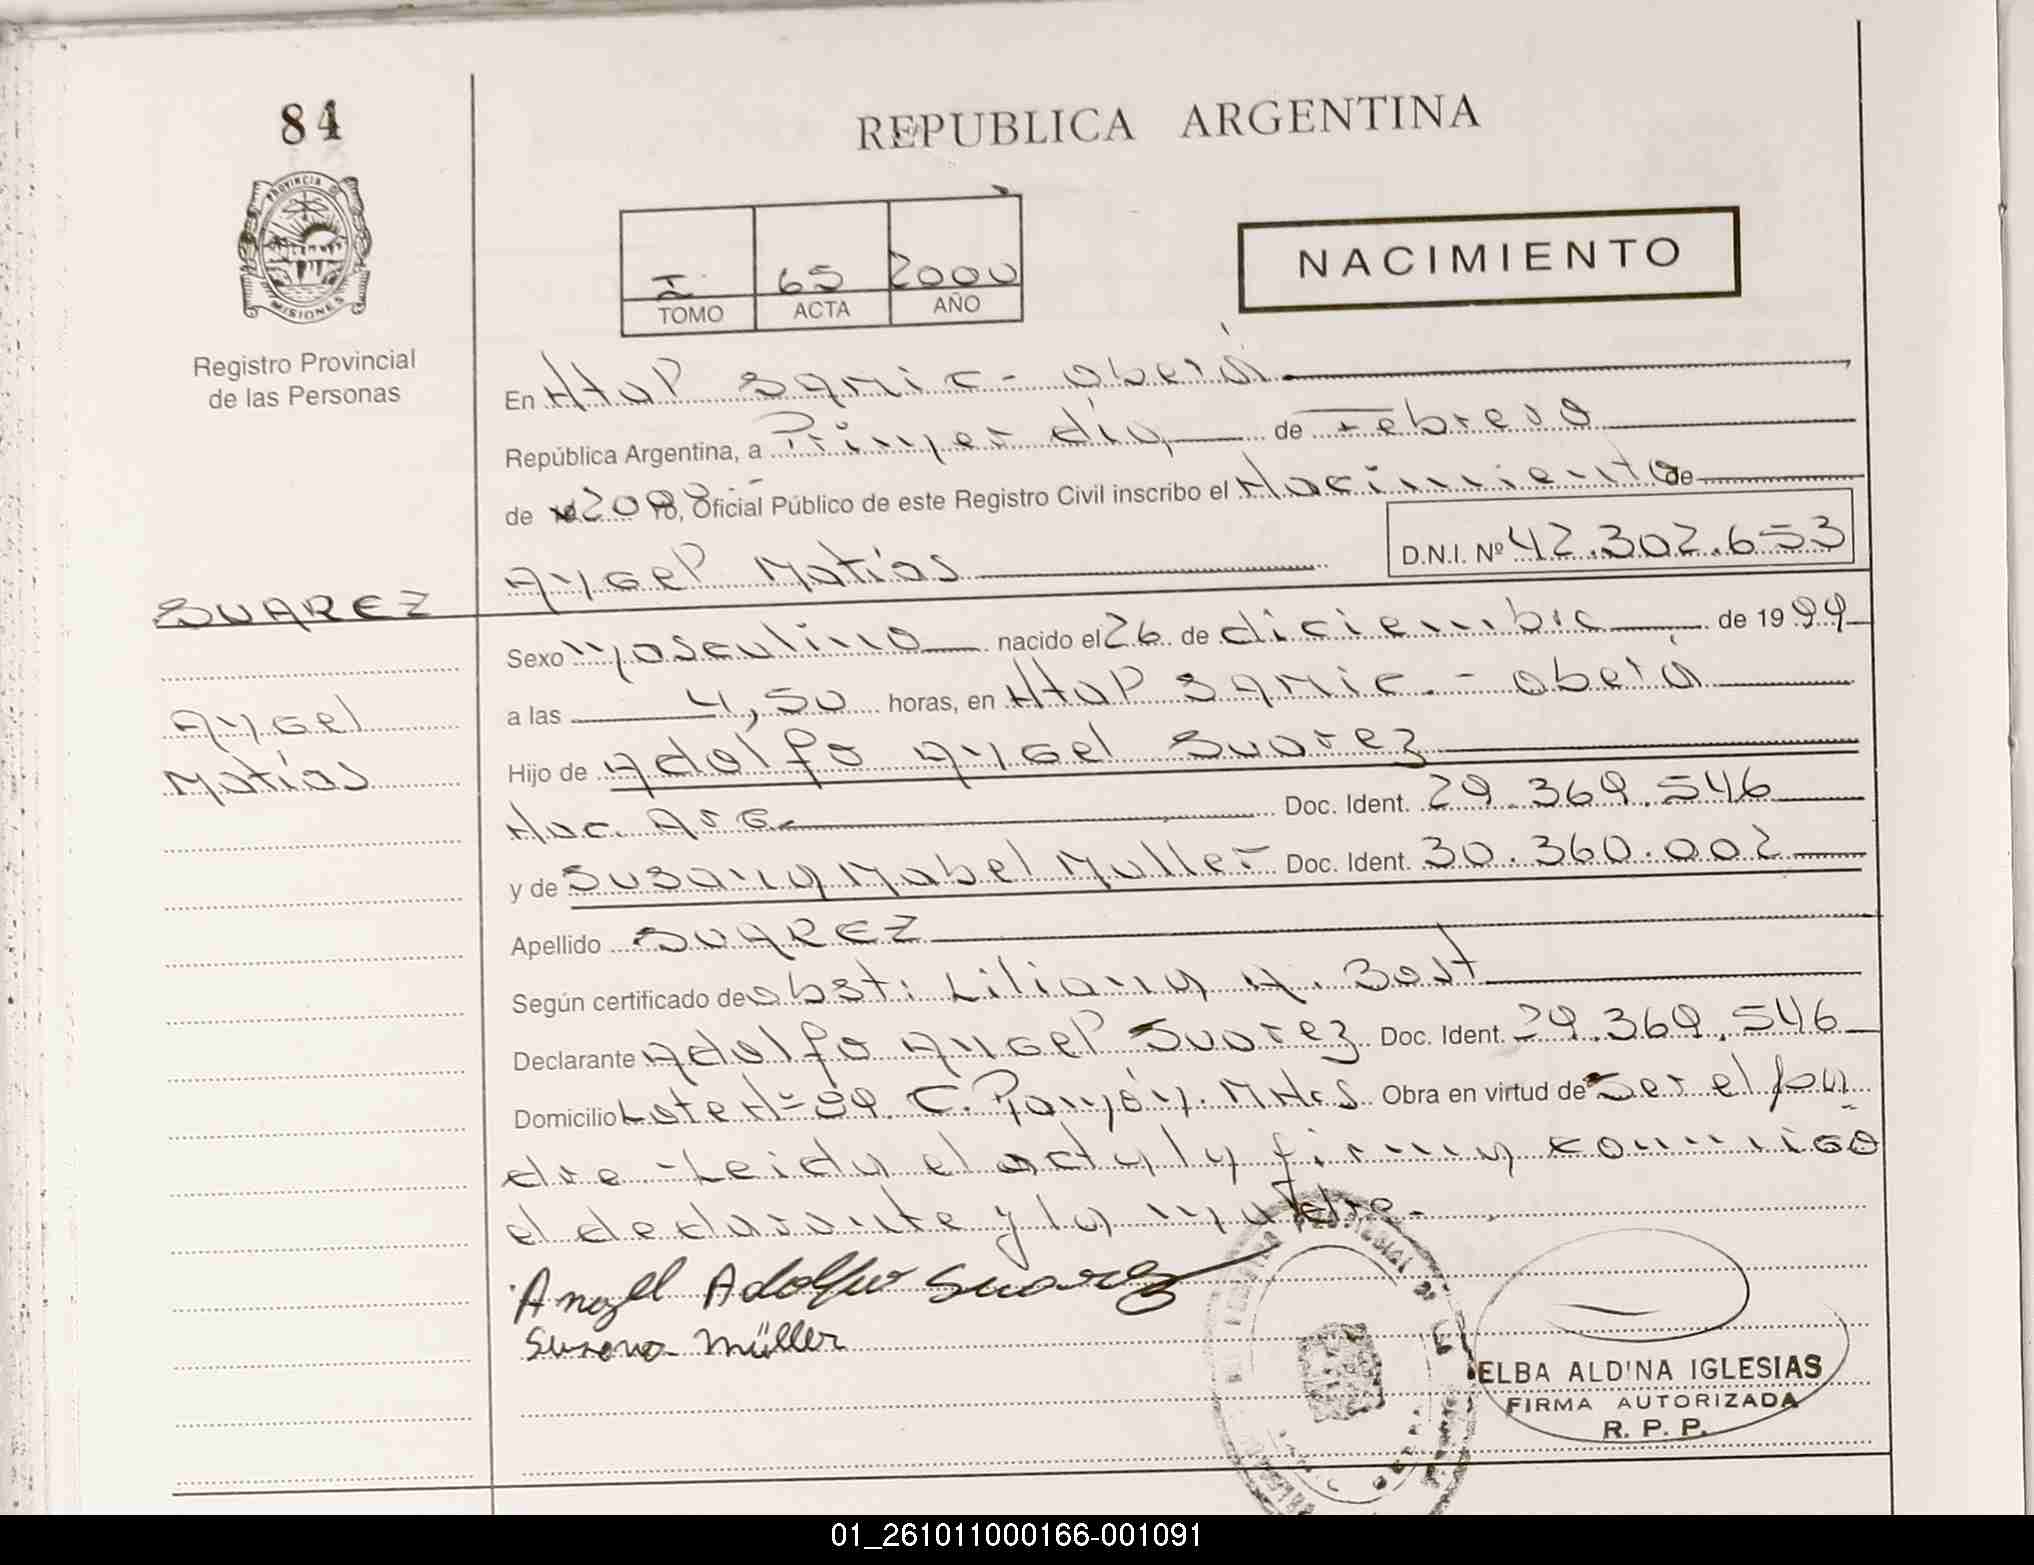 84
REPUBLICA ARGENTINA
PROVINCIA DE
MISIONES
Registro Provincial
de las Personas
I 65 2000
TOMO ACTA AÑO
NACIMIENTO
En Htal Samic - Oberá
República Argentina, a Primer día de Febrero
de 2000 Yo, Oficial Público de este Registro Civil inscribo el Nacimiento de
Angel Matías D.N.I. Nº 42.302.653
SUAREZ
Angel
Matías
Sexo Masculino nacido el 26 de diciembre de 1999
a las 4,50 horas, en Htal Samic. - Oberá
Hijo de Adolfo Angel Suarez
Nac. Arg. Doc. Ident. 29.369.546
y de Susana Mabel Muller Doc. Ident. 30.360.002
Apellido SUAREZ
Según certificado de Obst: Liliana
Declarante Adolfo Angel Suarez Doc. Ident. 29.369.546
Domicilio Lote Nº C. Ramón. Obra en virtud de ser el pa
dre - Leida el acta la firma conmigo
el declarante y la madre.
Angel Adolfo Suarez
Susana Müller
ELBA ALDINA IGLESIAS
FIRMA AUTORIZADA
R. P. P.
01_261011000166-001091